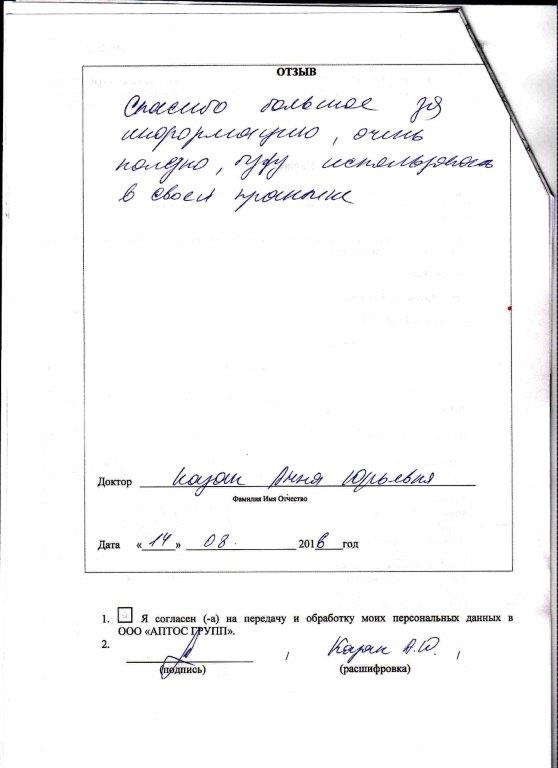 ОТЗЫВ
Спасибо большое за
информацию, очень
полезно, буду использовать
в своей практике
Доктор Казак Анна Юрьевна
Фамилия Имя Отчество
Дата «14» 08. 2016 год
1. Я согласен (-а) на передачу и обработку моих персональных данных в
ООО «АПТОС ГРУПП».
2. / А.Ю. /
(подпись) (расшифровка)